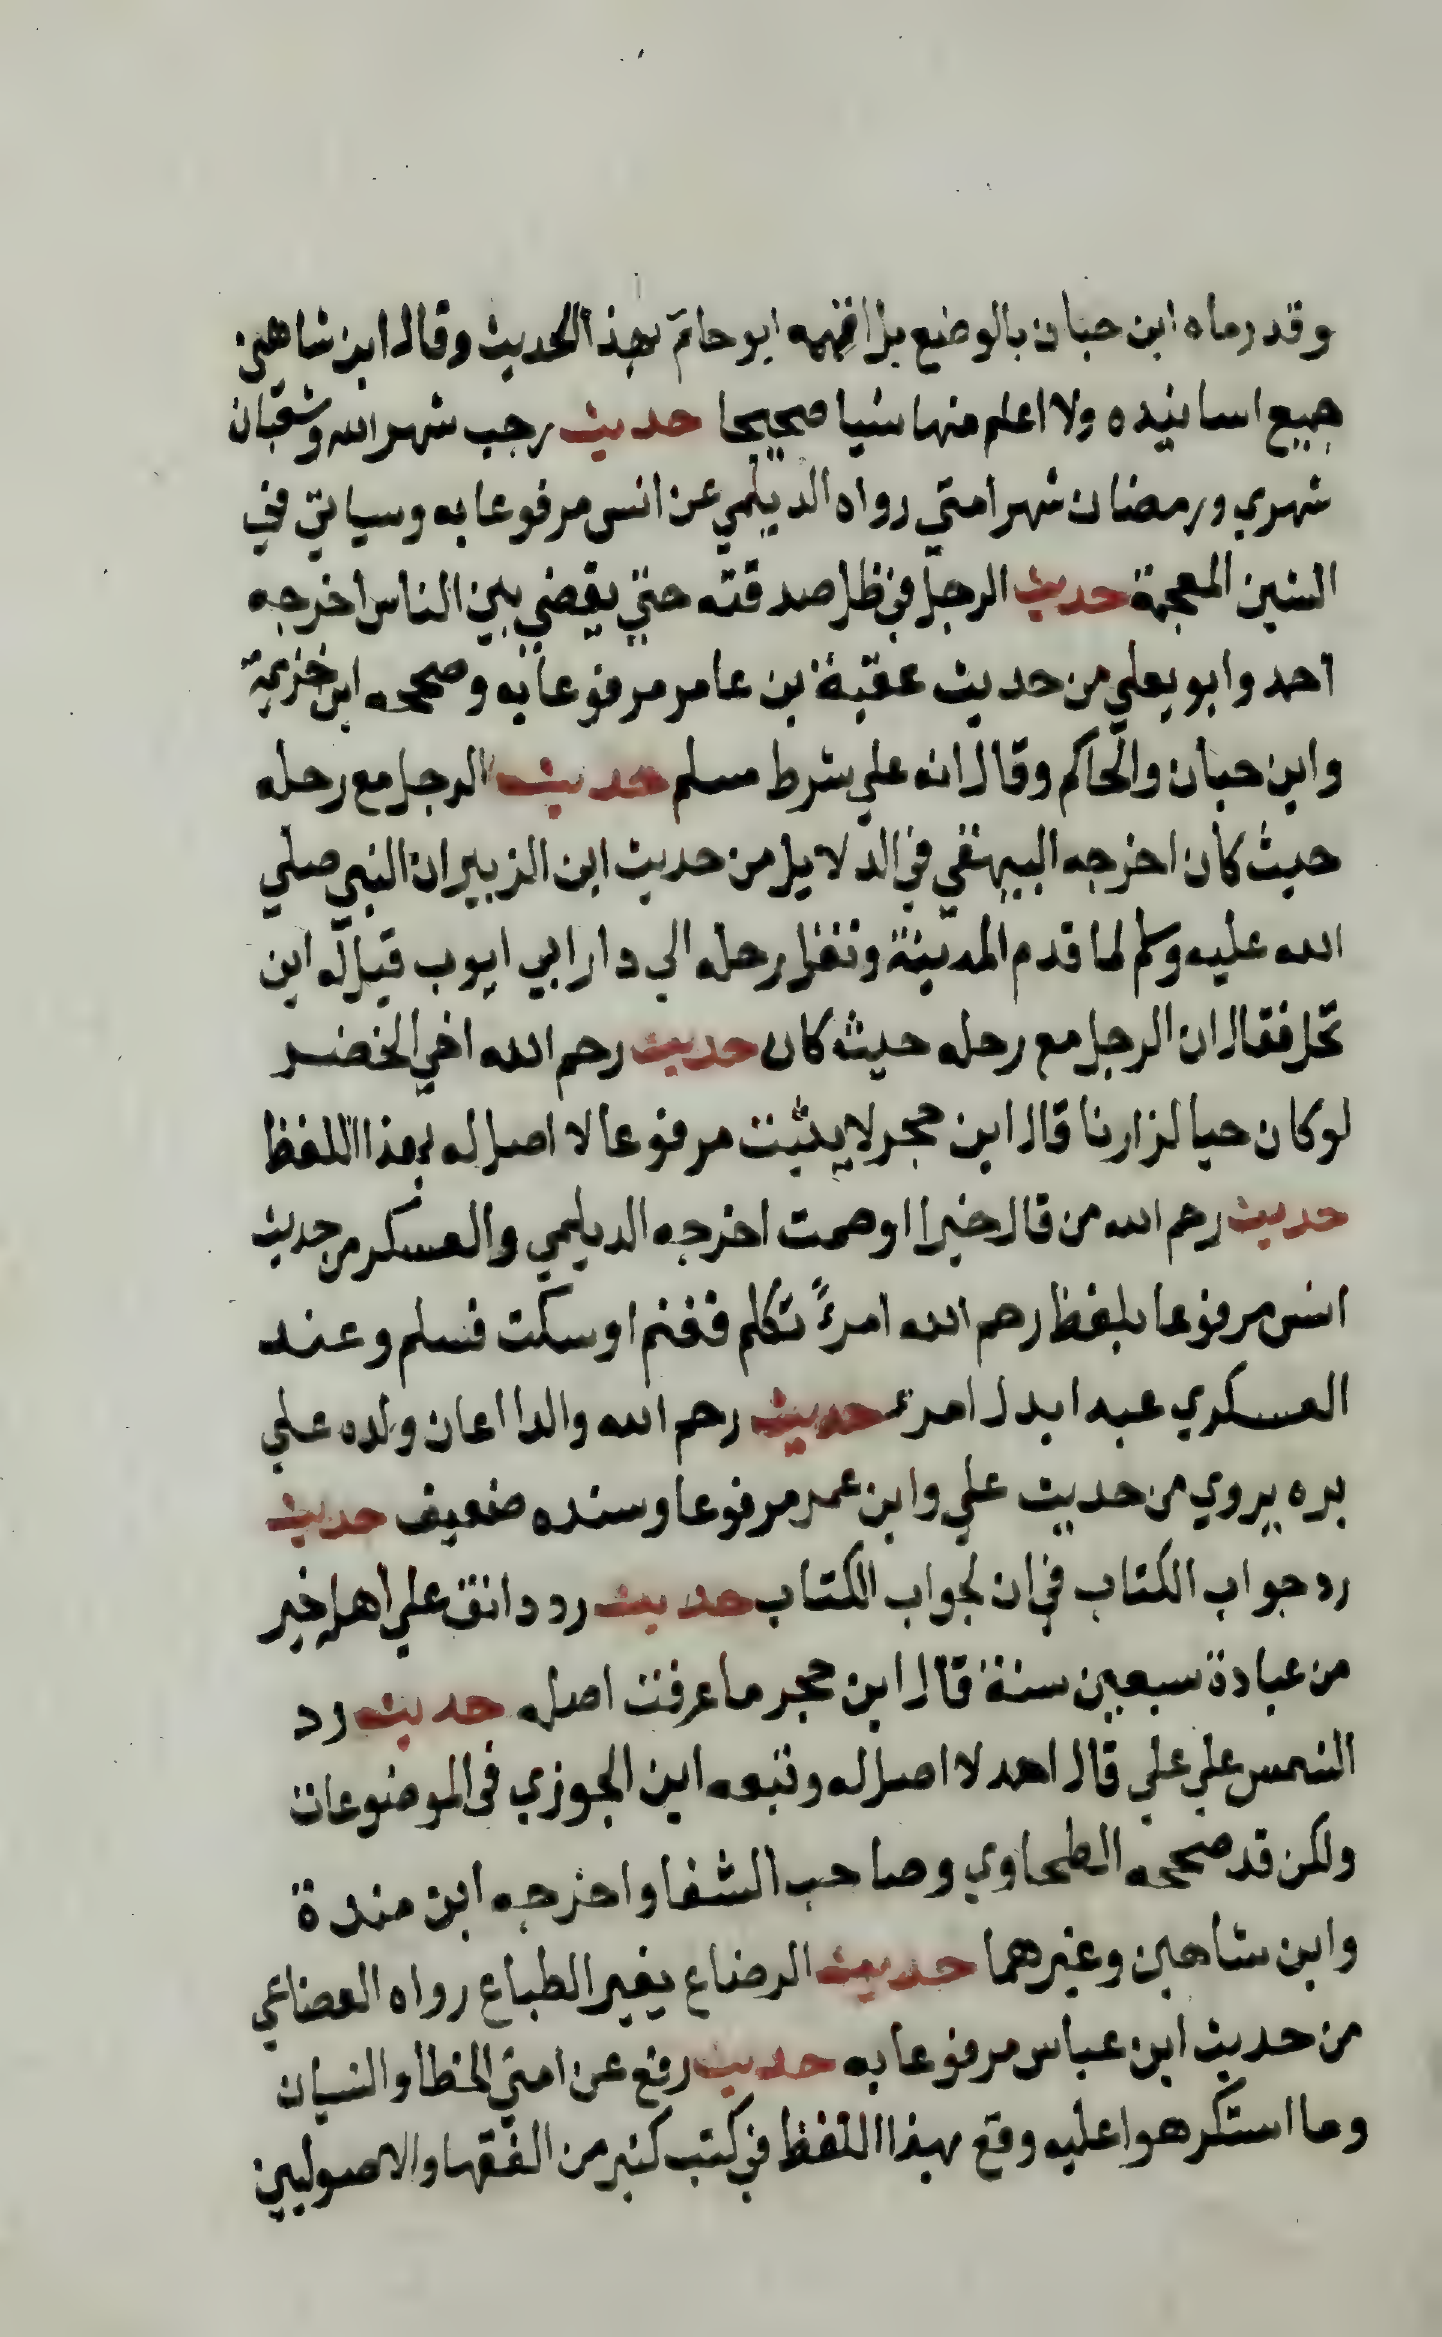 وقد رماه ابن حبان بالوضع بل اتهمه ابو حاتم بهذا الحديث وقال ابن شاهين
جميع اسانيده ولا اعلم منها شيا صحيحا حديث رجب شهر الله وشعبان
شهري ورمضان شهر امتي رواه الديلمي عن انس مرفوعا به وسياتي في
الشين المعجمة حديث الرجل في ظل صدقته حتي يقضي بين الناس اخرجه
احمد وابو يعلي من حديث عقبة بن عامر مرفوعا به وصححه ابن خزيمة
وابن حبان والحاكم وقال انه علي شرط مسلم حديث الرجل مع رحله
حيث كان اخرجه البيهقي في الدلايل من حديث ابن الزبير ان النبي صلي
الله عليه وسلم لما قدم المدينة ونقل رحله الي دار ابي ايوب قيل له اين
تحل فقال ان الرجل مع رحله حيث كان حديث رحم الله اخي الخضر
لو كان حيا لزارنا قال ابن حجر لا يثبت مرفوعا لا اصل له بهذا اللفظ
حديث رحم الله من قال خيرا او صمت اخرجه الديلمي والعسكر من حديث
انس مرفوعا بلفظ رحم الله امرءً تكلم فغنم او سكت فسلم وعند
العسكري عبد ابدل امرء حديث رحم الله والدا اعان ولده علي
بره يروي من حديث علي وابن عمر مرفوعا وسنده ضعيف حديث
رد جواب الكتاب في ان لجواب الكتاب حديث رد دانق علي اهله خير
من عبادة سبعين سنة قال ابن حجر ما عرفت اصله حديث رد
الشمس علي علي قال احمد لا اصل له وتبعه ابن الجوزي في الموضوعات
ولكن قد صححه الطحاوي وصاحب الشفا واخرجه ابن مندة
وابن شاهين وغيرهما حديث الرضاع يغير الطباع رواه القضاعي
من حديث ابن عباس مرفوعا به حديث رفع عن امتي الخطا والنسيان
وما استكرهوا عليه وقع بهذا اللفظ في كتب كثير من الفقها والاصوليين